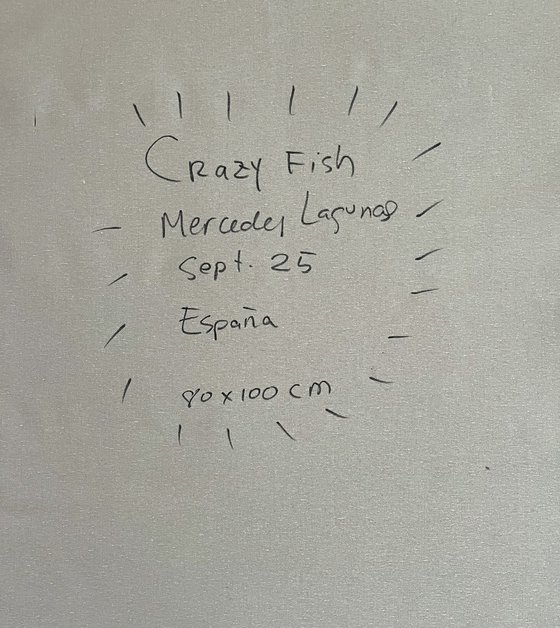 Crazy Fish
Mercedes Lagunas
Sept. 25
España
80x100 cm